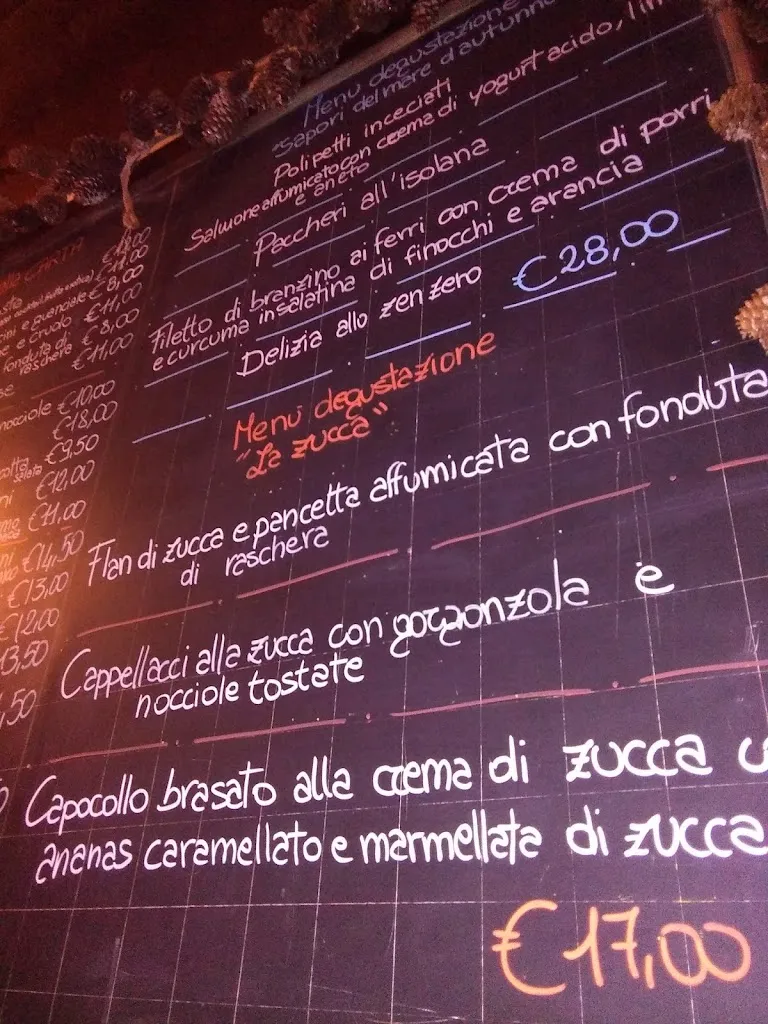 Menu degustazione
"Sapori del mare d'autunno
Polipetti inceciati
Salmone affumicato con crema di yogurt acido,
e aneto
Paccheri all'isolana
Filetto di branzino ai ferri con crema di porri
e curcuma insalatina di finocchi e arancia
Delizia allo zenzero €28,00
Menu degustazione
"La zucca"
Flan di zucca e pancetta affumicata con fonduta
di raschera
Cappellacci alla zucca con gorgonzola e
nocciole tostate
Capocollo brasato alla crema di zucca
ananas caramellato e marmellata di zucca
€17,00
CARTA
€11,00
e guanciale €8,00
e crudo €11,00
fonduta di €8,00
raschera €11,00
nocciole €10,00
€18,00
€9,50
€12,00
€11,00
€14,50
€13,00
€12,00
13,50
,50